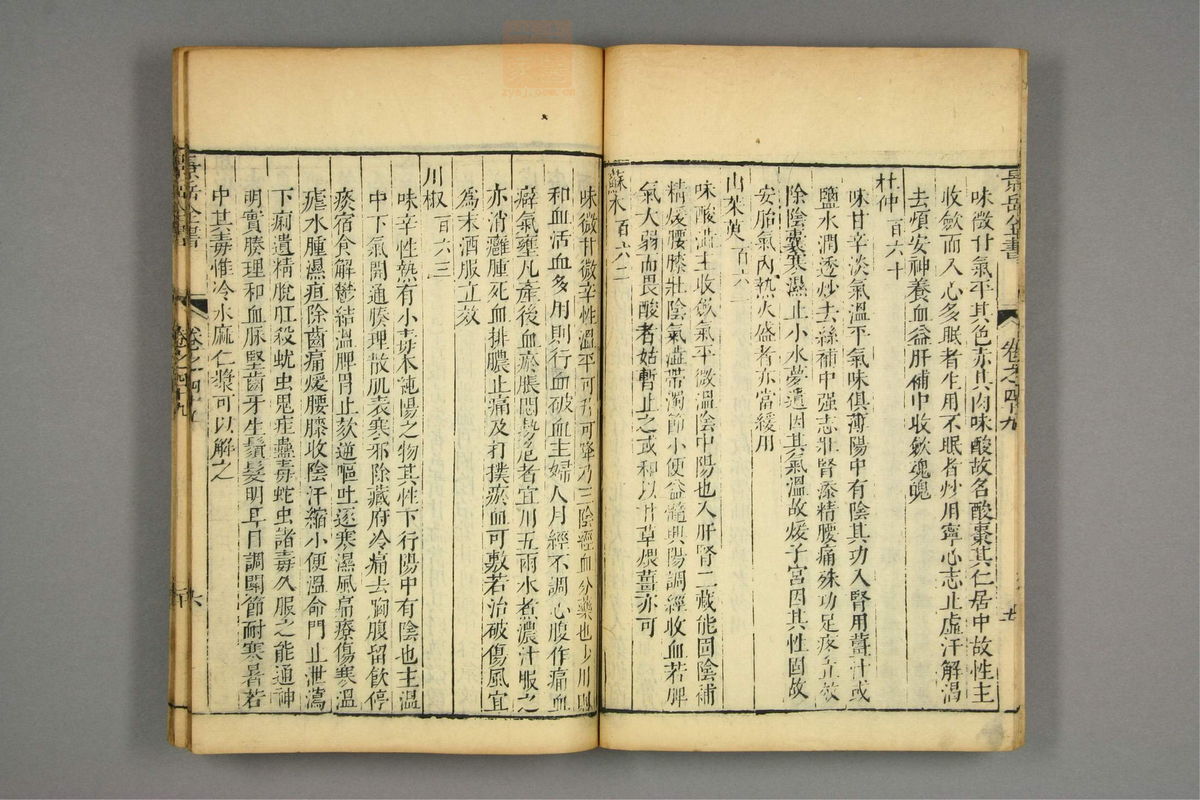 味微甘氣平其色赤其肉味酸故名酸棗其仁居中故性主
收斂而入心多眠者生用不眠者炒用寧心志止虛汗解渴
去煩安神養血益肝補中收斂魂魄
杜仲百六十
味甘辛淡氣溫平氣味俱薄陽中有陰其功入腎用薑汁或
鹽水潤透炒去絲補中强志壯腎添精腰痛殊功足疼立效
除陰囊寒濕止小水夢遺因其氣溫故煖子宮因其性固故
安胎氣內熱火盛者亦當緩用
山茱萸百六一
味酸澁主收斂氣平微溫陰中陽也入肝腎二藏能固陰補
精煖腰膝壯陰氣澁帶濁節小便益髓興陽調經收血若脾
氣大弱而畏酸者姑暫止之或和以甘草煨薑亦可
蘇木百六二
味微甘微辛性溫平可升可降乃三陰經血分藥也少用則
和血活血多用則行血破血主婦人月經不調心腹作痛血
癖氣壅凡產後血瘀脹悶勢危者宜用五兩水煮濃汁服之
亦消癰腫死血排膿止痛及打撲瘀血可敷若治破傷風宜
爲末酒服立效
川椒百六三
味辛性熱有小毒本純陽之物其性下行陽中有陰也主溫
中下氣開通腠理散肌表寒邪除藏府冷痛去胸腹留飲停
痰宿食解鬱結溫脾胃止欬逆嘔吐逐寒濕風痛療傷寒溫
瘧水腫濕疸除齒痛煖腰膝收陰汗縮小便溫命門止泄瀉
下痢遺精脫肛殺蚘虫鬼疰蠱毒蛇虫諸毒久服之能通神
明實腠理和血脉堅齒牙生鬚髮明耳目調關節耐寒暑若
中其毒惟冷水麻仁漿可以解之
景岳全書
卷之四十九